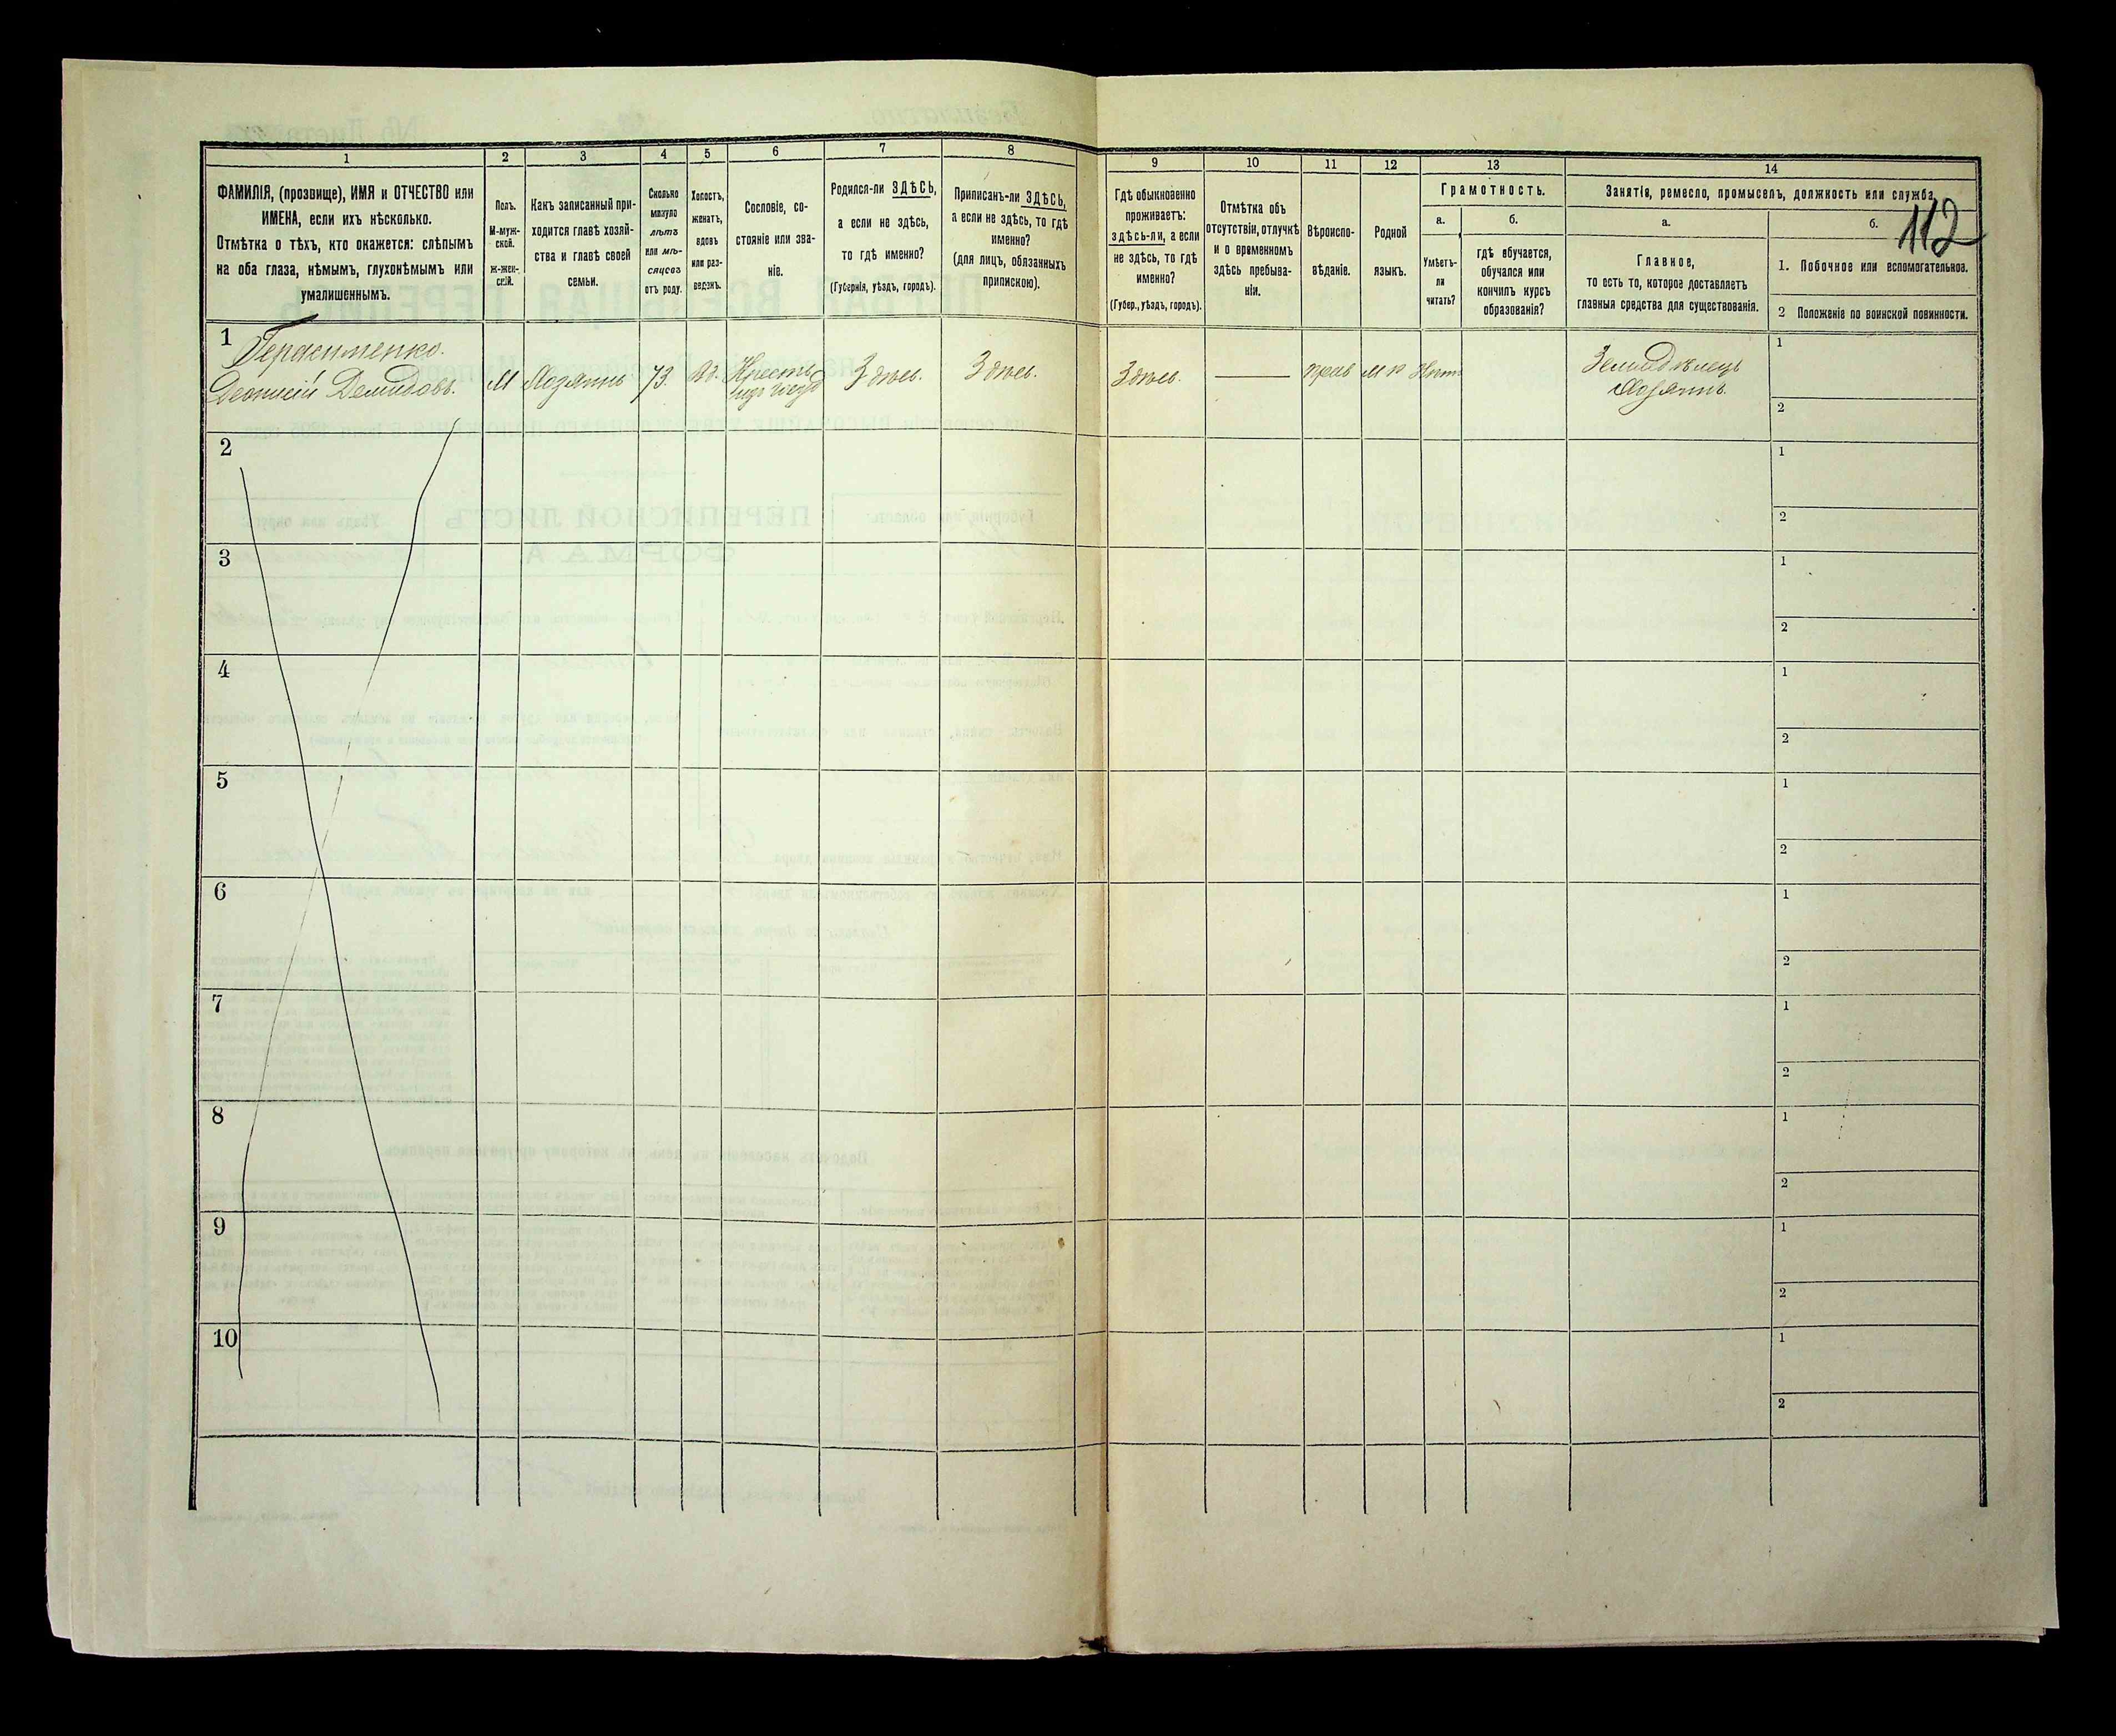 112
1
2
3
4
5
6
7
8
9
10
11
12
13
14
ФАМИЛІЯ, (прозвище), ИМЯ и ОТЧЕСТВО или
ИМЕНА, если ихъ нѣсколько.
Отмѣтка о тѣхъ, кто окажется: слѣпымъ
на оба глаза, нѣмымъ, глухонѣмымъ или
умалишеннымъ.
Полъ.
М-муж-
ской.
ж-жен-
скій.
Какъ записанный при-
ходится главѣ хозяй-
ства и главѣ своей
семьи.
Сколько
минуло
лѣтъ
или мѣ-
сяцевъ
отъ роду.
Холостъ,
женатъ,
вдовъ
или раз-
веденъ.
Сословіе, со-
стояніе или зва-
ніе.
Родился-ли ЗДѢСЬ,
а если не здѣсь,
то гдѣ именно?
(Губернія, уѣздъ, городъ).
Приписанъ-ли ЗДѢСЬ,
а если не здѣсь, то гдѣ
именно?
(для лицъ, обязанныхъ
припискою).
Гдѣ обыкновенно
проживаетъ:
здѣсь-ли, а если
не здѣсь, то гдѣ
именно?
(Губер., уѣздъ, городъ).
Отмѣтка объ
отсутствіи, отлучкѣ
и о временномъ
здѣсь пребыва-
ніи.
Вѣроиспо-
вѣданіе.
Родной
языкъ.
Грамотность.
а.
Умѣетъ-
ли
читать?
б.
гдѣ обучается,
обучался или
кончилъ курсъ
образованія?
Занятія, ремесло, промыселъ, должность или служба
а.
Главное,
то есть то, которое доставляетъ
главныя средства для существованія.
б.
1. Побочное или вспомогательное.
2 Положеніе по воинской повинности.
1
Герасименко.
Деонисій Демидовъ.
М
Хозяинъ
73.
Вд.
Здѣсь.
Здѣсь.
Здѣсь.
прав
М р
Нѣтъ
Земледѣлецъ
Хозяинъ.
1
2
2
1
2
3
1
2
4
1
2
5
1
2
6
1
2
7
1
2
8
1
2
9
1
2
10
1
2